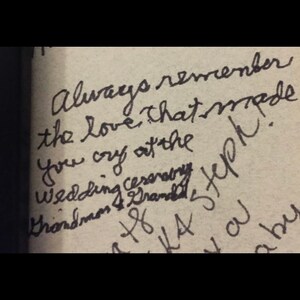 Always remember
the love that made
you cry at the
wedding ceremony
Grandma & Grandad
Steph!